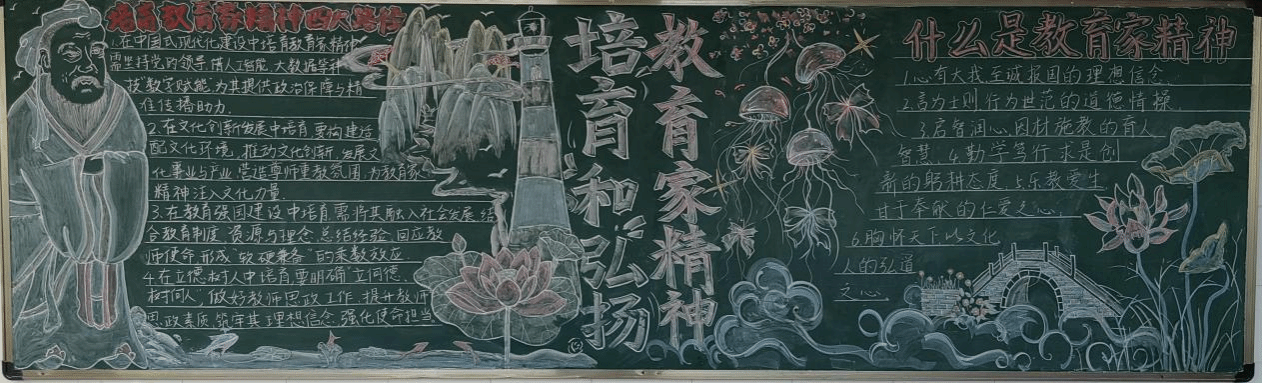 培育教育家精神四大路径
1.在中国式现代化建设中培育教育家精神
需坚持党的领导,借人工智能、大数据等科
技数字赋能,为其提供政治保障与精
准传播助力.
2.在文化创新发展中培育,要构建适
配文化环境,推动文化创新,发展文
化事业与产业,营造尊师重教氛围,为教育家
精神注入文化力量.
3.在教育强国建设中培育,需将其融入社会发展,结
合教育制度、资源与理念,总结经验,回应教
师使命,形成"软硬兼备"的乘数效应
4.在立德树人中培育,要明确"立何德、
树何人",做好教师思政工作,提升教师
思政素质,筑牢其理想信念,强化使命担当
培育和弘扬
教育家精神
什么是教育家精神
1.心有大我、至诚报国的理想信念
2.言为士则、行为世范的道德情操
3.启智润心、因材施教的育人
智慧.4.勤学笃行、求是创
新的躬耕态度.5.乐教爱生、
甘于奉献的仁爱之心.
6.胸怀天下、以文化
人的弘道
之心.